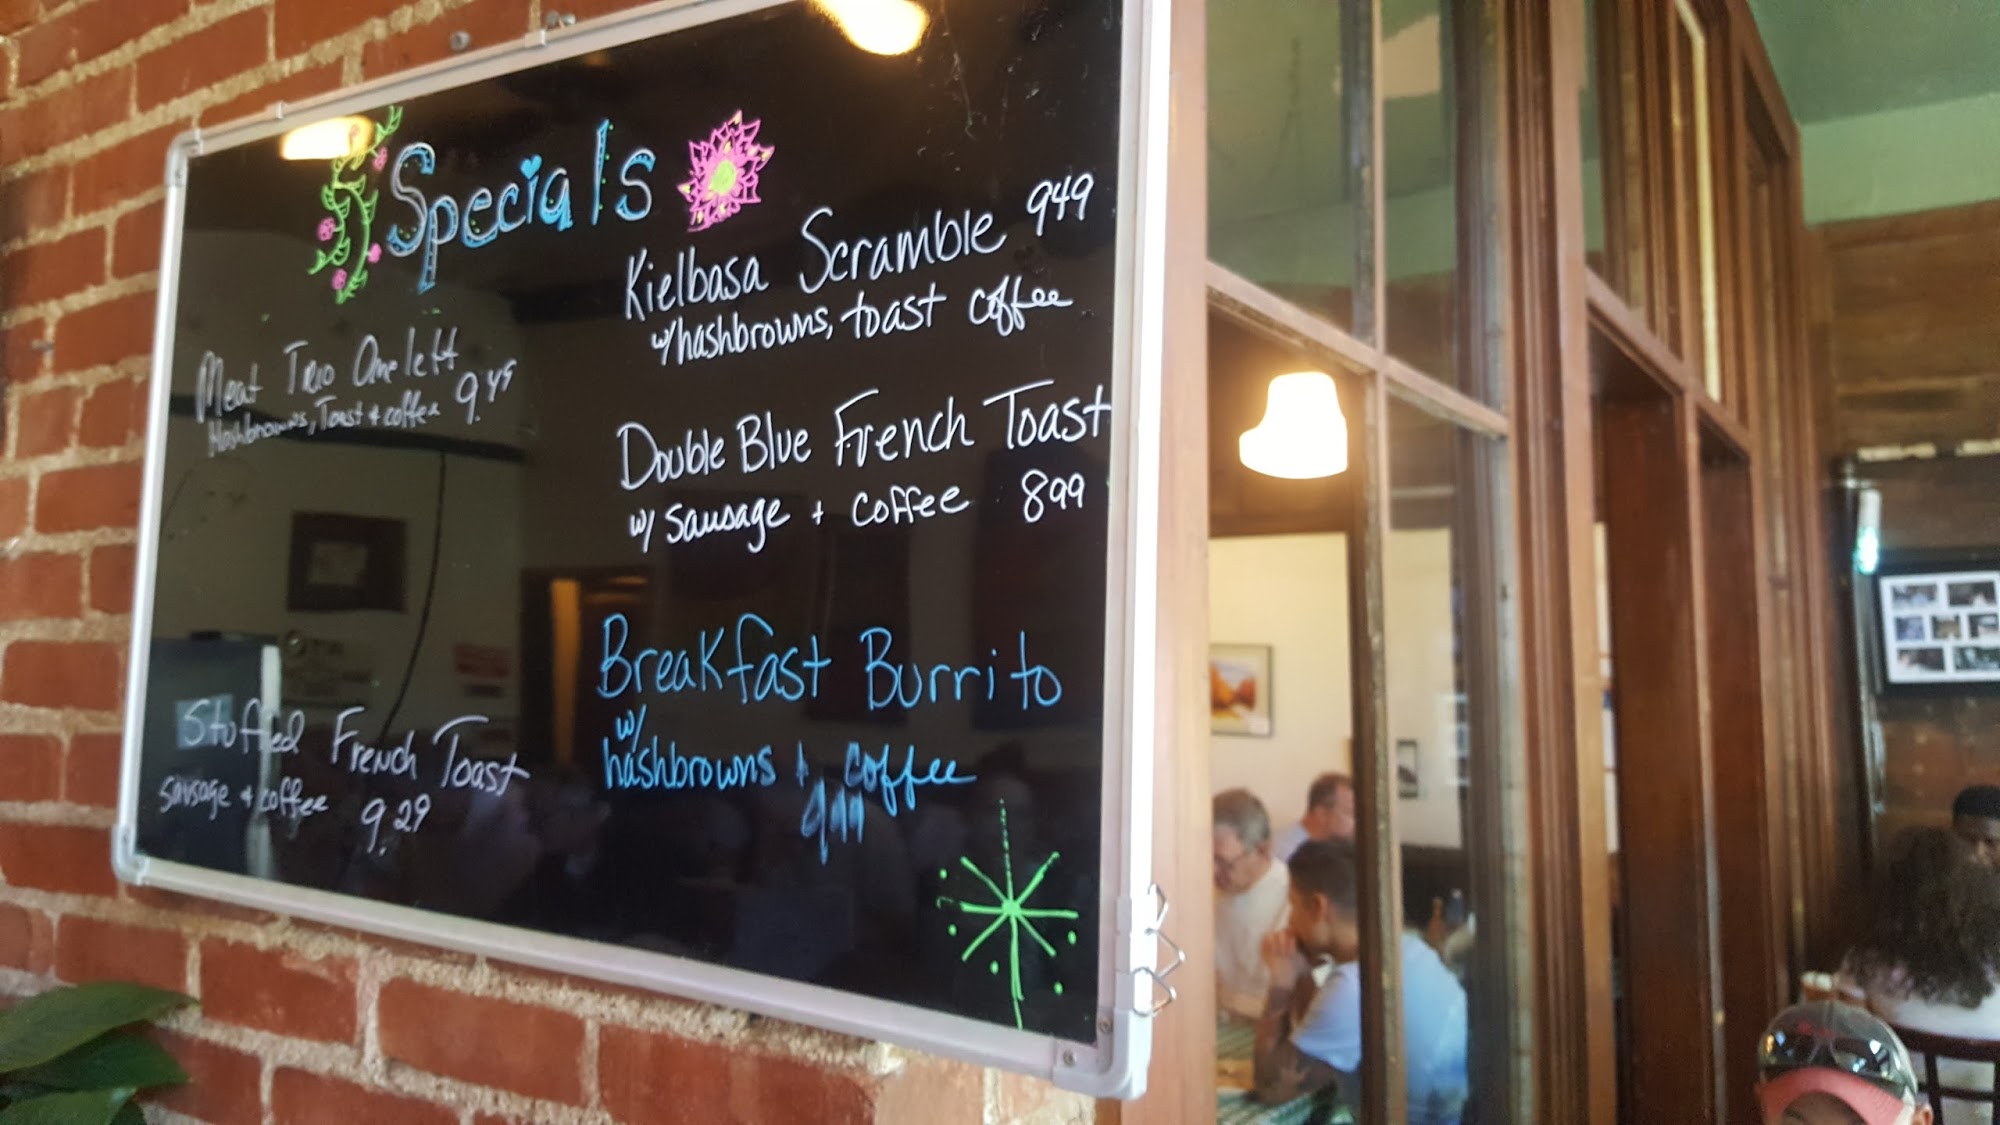 Specials
Meat Trio Omelett
Hashbrowns, Toast + coffee 9.49
Stuffed French Toast
sausage + coffee 9.29
Kielbasa Scramble 949
w/hashbrowns, toast coffee
Double Blue French Toast
w/ sausage + coffee 899
Breakfast Burrito
w/
hashbrowns + coffee